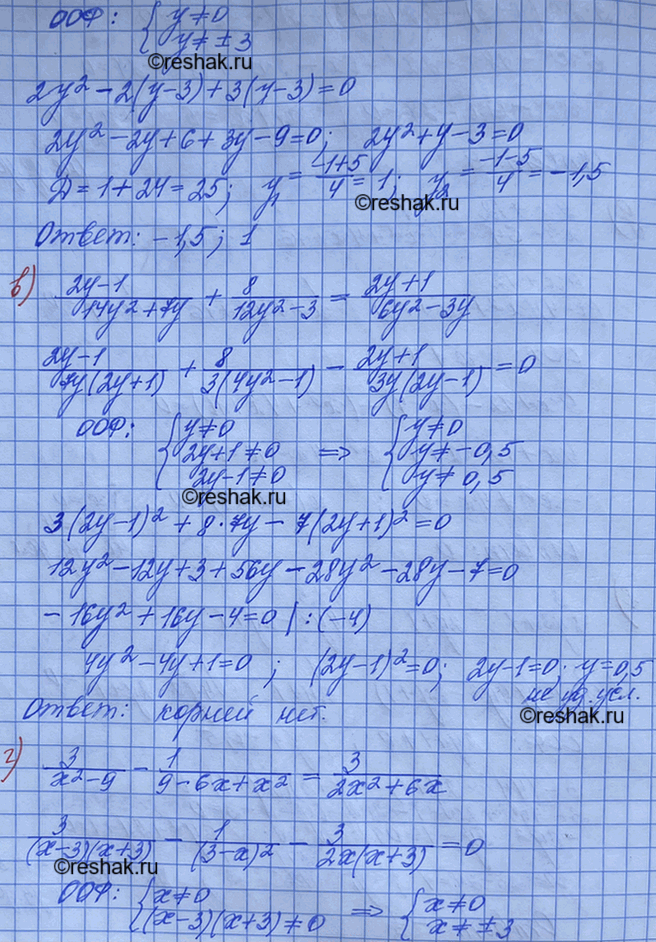 ООФ: { y≠0
y≠±3
©reshak.ru
2y²−2(y−3)+3(y−3)=0
2y²−2y+6+3y−9=0; 2y²+y−3=0
Д=1+24=25; y₁=(-1+5)/4=1; y₂=(-1-5)/4=−1,5
©reshak.ru
Ответ: −1,5; 1
в) (2y−1)/(14y²+7y) + 8/(12y²−3) = (2y+1)/(6y²−3y)
(2y−1)/(7y(2y+1)) + 8/(3(4y²−1)) − (2y+1)/(3y(2y−1)) =0
ООФ: { y≠0 ⇒ { y≠0
2y+1≠0 y≠−0,5
2y−1≠0 y≠0,5
©reshak.ru
3(2y−1)²+8·7y−7(2y+1)²=0
12y²−12y+3+56y−28y²−28y−7=0
−16y²+16y−4=0 |:(−4)
4y²−4y+1=0; (2y−1)²=0; 2y−1=0; y=0,5
не уд. усл.
©reshak.ru
Ответ: корней нет.
г) 3/(x²−9) − 1/(9−6x+x²) = 3/(2x²+6x)
3/((x−3)(x+3)) − 1/(3−x)² − 3/(2x(x+3)) =0
©reshak.ru
ООФ: { x≠0 ⇒ { x≠0
(x−3)(x+3)≠0 x≠±3